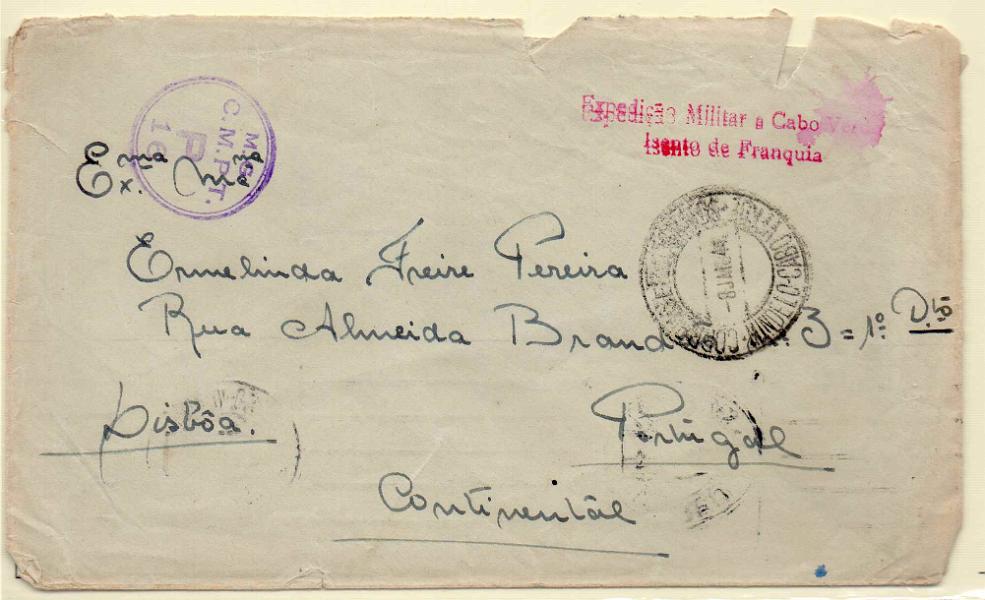 M.G.
C.M.P.T.
P
16
Expedição Militar a Cabo Verde
Isento de Franquia
Exmª Mãe
Ermelinda Freire Pereira
Rua Almeida Brandão nº 3 = 1º D.tº
-8 JAN. 44
Lisbôa.
Portugal
Continentãl